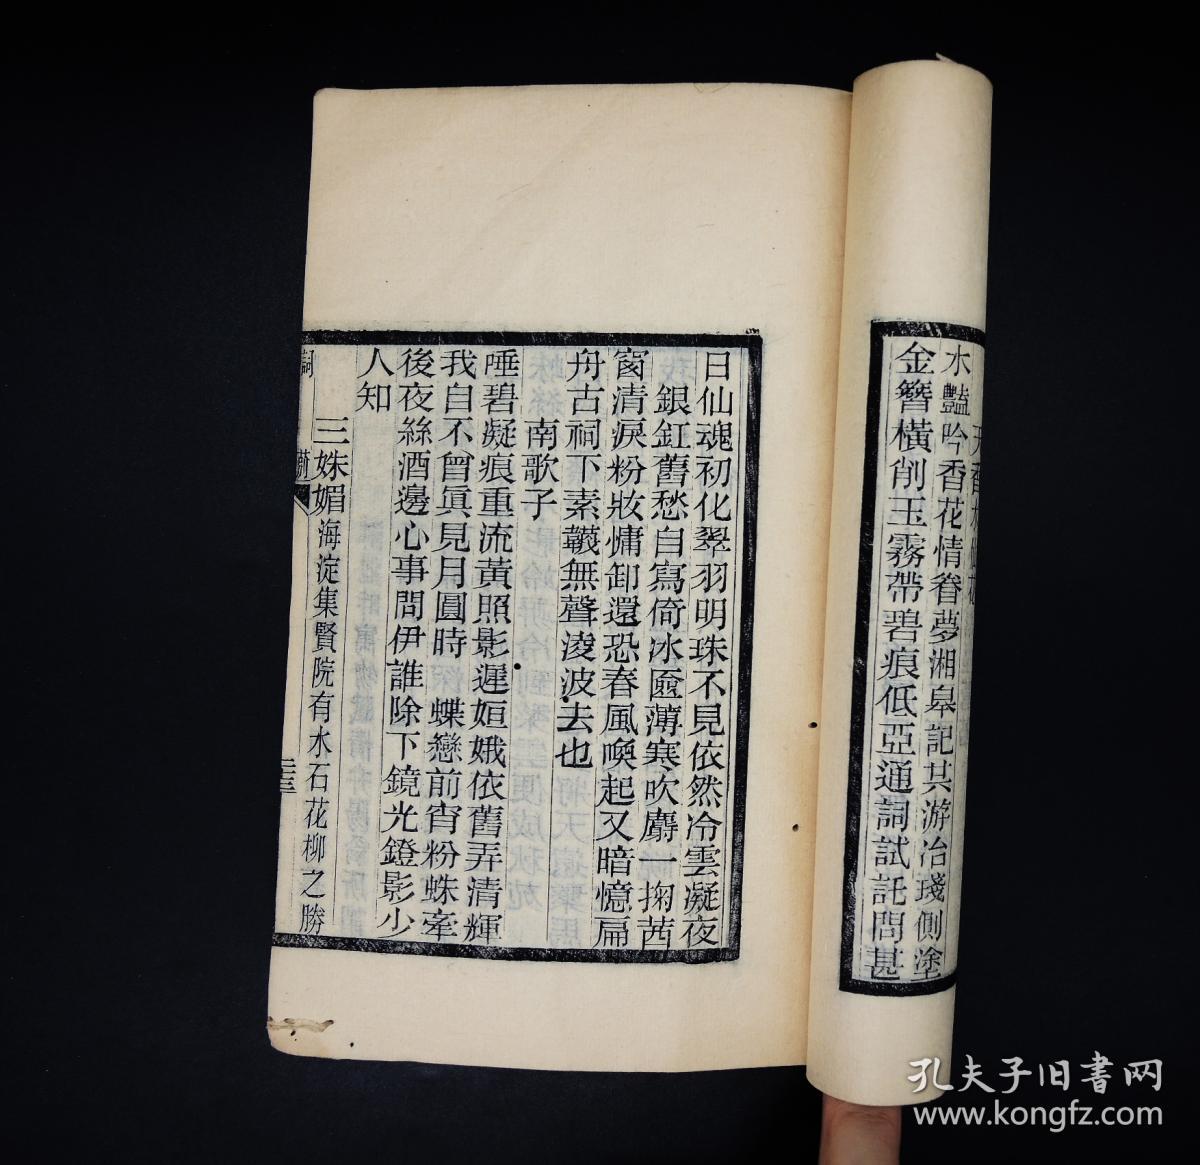 水豔吟香花情眷夢湘皋記其游冶琖側塗
金簪橫削玉霧帶碧痕低亞通詞試託問甚
日仙魂初化翠羽明珠不見依然冷雲凝夜
銀釭舊愁自寫倚冰匳薄寒吹麝一掬茜
窗清淚粉妝慵卸還恐春風喚起又暗憶扁
舟古祠下素韤無聲淩波去也
南歌子
唾碧凝痕重流黃照影遲姮娥依舊弄清輝
我自不曾眞見月圓時 蝶戀前宵粉蛛牽
後夜絲酒邊心事問伊誰除下鏡光鐙影少
人知
三姝媚海淀集賢院有水石花柳之勝
孔夫子旧書网
www.kongfz.com